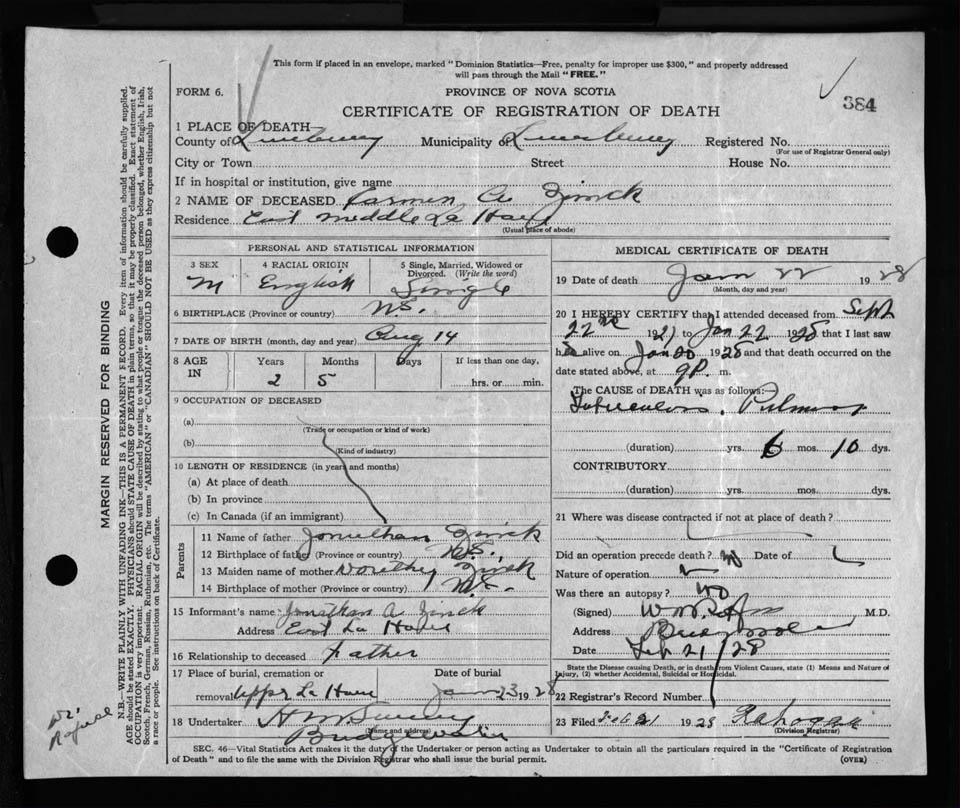 This form if placed in an envelope, marked "Dominion Statistics—Free, penalty for improper use $300," and properly addressed
will pass through the Mail "FREE."
FORM 6.
PROVINCE OF NOVA SCOTIA
384
CERTIFICATE OF REGISTRATION OF DEATH
1 PLACE OF DEATH
County of Lunenburg Municipality of Lunenburg Registered No.
(For use of Registrar General only)
City or Town Street House No.
If in hospital or institution, give name
2 NAME OF DECEASED Carmen A Zinck
Residence East Middle La Have
(Usual place of abode)
PERSONAL AND STATISTICAL INFORMATION
3 SEX 4 RACIAL ORIGIN 5 Single, Married, Widowed or
Divorced. (Write the word)
M English Single
6 BIRTHPLACE (Province or country) N.S.
7 DATE OF BIRTH (month, day and year) Aug 14
8 AGE IN Years Months Days If less than one day,
2 5 hrs. or min.
9 OCCUPATION OF DECEASED
(a)
(Trade or occupation or kind of work)
(b)
(Kind of industry)
10 LENGTH OF RESIDENCE (in years and months)
(a) At place of death
(b) In province
(c) In Canada (if an immigrant)
Parents
11 Name of father Jonathan Zinck
12 Birthplace of father (Province or country) N.S.
13 Maiden name of mother Dorothy Zinck
14 Birthplace of mother (Province or country) N.S.
15 Informant's name Jonathan A. Zinck
Address East La Have
16 Relationship to deceased Father
17 Place of burial, cremation or Date of burial
removal Upper La Have Jan 23 1928
18 Undertaker
(Name and address)
Bridgewater
MEDICAL CERTIFICATE OF DEATH
19 Date of death Jan 22 1928
(Month, day and year)
20 I HEREBY CERTIFY that I attended deceased from Sept
22nd 1927 to Jan 22 1928 that I last saw
h alive on Jan 20 1928 and that death occurred on the
date stated above, at 9 P. m.
The CAUSE of DEATH was as follows:
Tuberculosis, Pulmonary
(duration) yrs. 6 mos. 10 dys.
CONTRIBUTORY
(duration) yrs. mos. dys.
21 Where was disease contracted if not at place of death?
Did an operation precede death? No Date of
Nature of operation
Was there an autopsy? No
(Signed) M.D.
Address Bridgewater
Date Feb 21/28
State the Disease causing Death, or in death from Violent Causes, state (1) Means and Nature of
Injury, (2) whether Accidental, Suicidal or Homicidal.
22 Registrar's Record Number
23 Filed Feb 21 1928
(Division Registrar)
SEC. 46—Vital Statistics Act makes it the duty of the Undertaker or person acting as Undertaker to obtain all the particulars required in the "Certificate of Registration
of Death" and to file the same with the Division Registrar who shall issue the burial permit.
(OVER)
MARGIN RESERVED FOR BINDING
N.B.—WRITE PLAINLY WITH UNFADING INK—THIS IS A PERMANENT RECORD. Every item of information should be carefully supplied.
AGE should be stated EXACTLY. PHYSICIANS should STATE CAUSE OF DEATH in plain terms, so that it may be properly classified. Exact statement of
OCCUPATION is very important. RACIAL ORIGIN will be described by stating to what people or tongue the deceased person belonged, whether English, Irish,
Scotch, French, German, Russian, Ruthenian, etc. The terms "AMERICAN" or "CANADIAN" SHOULD NOT BE USED as they express citizenship but not
a race or people. See instructions on back of Certificate.